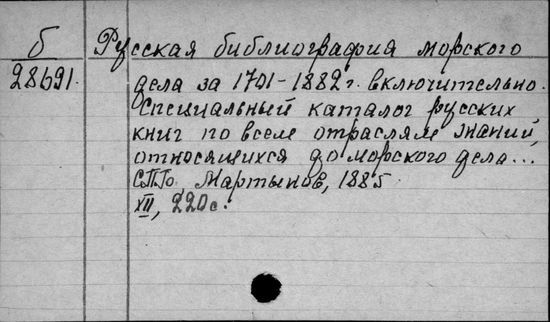 б Русская библиография морского
28691. дела за 1701-1882 г. включительно.
Специальный каталог русских
книг по всем отраслям знаний,
относящихся до морского дела...
СПб, Мартынов, 1885
XII, 220 с.